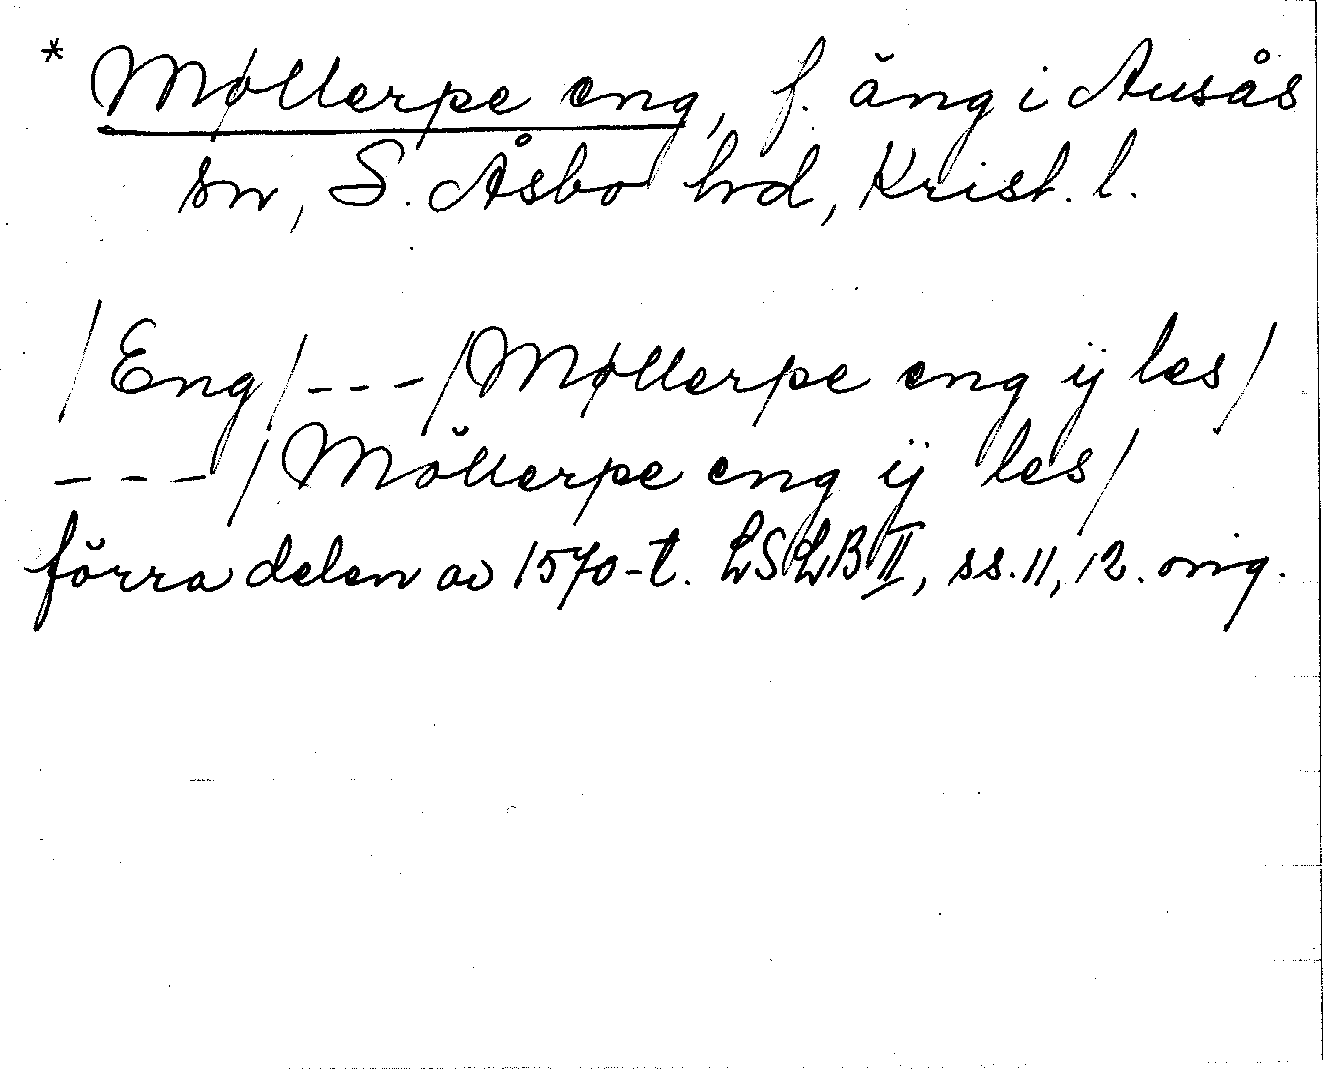 * Møllerpe eng, f. äng i Ausås
sn, S. Åsbo hd, Krist. l.
/Eng/---/Møllerpe eng ij les/
---/Möllerpe eng ij les/
förra delen av 1570-t. LSLB II, ss. 11, 12. orig.